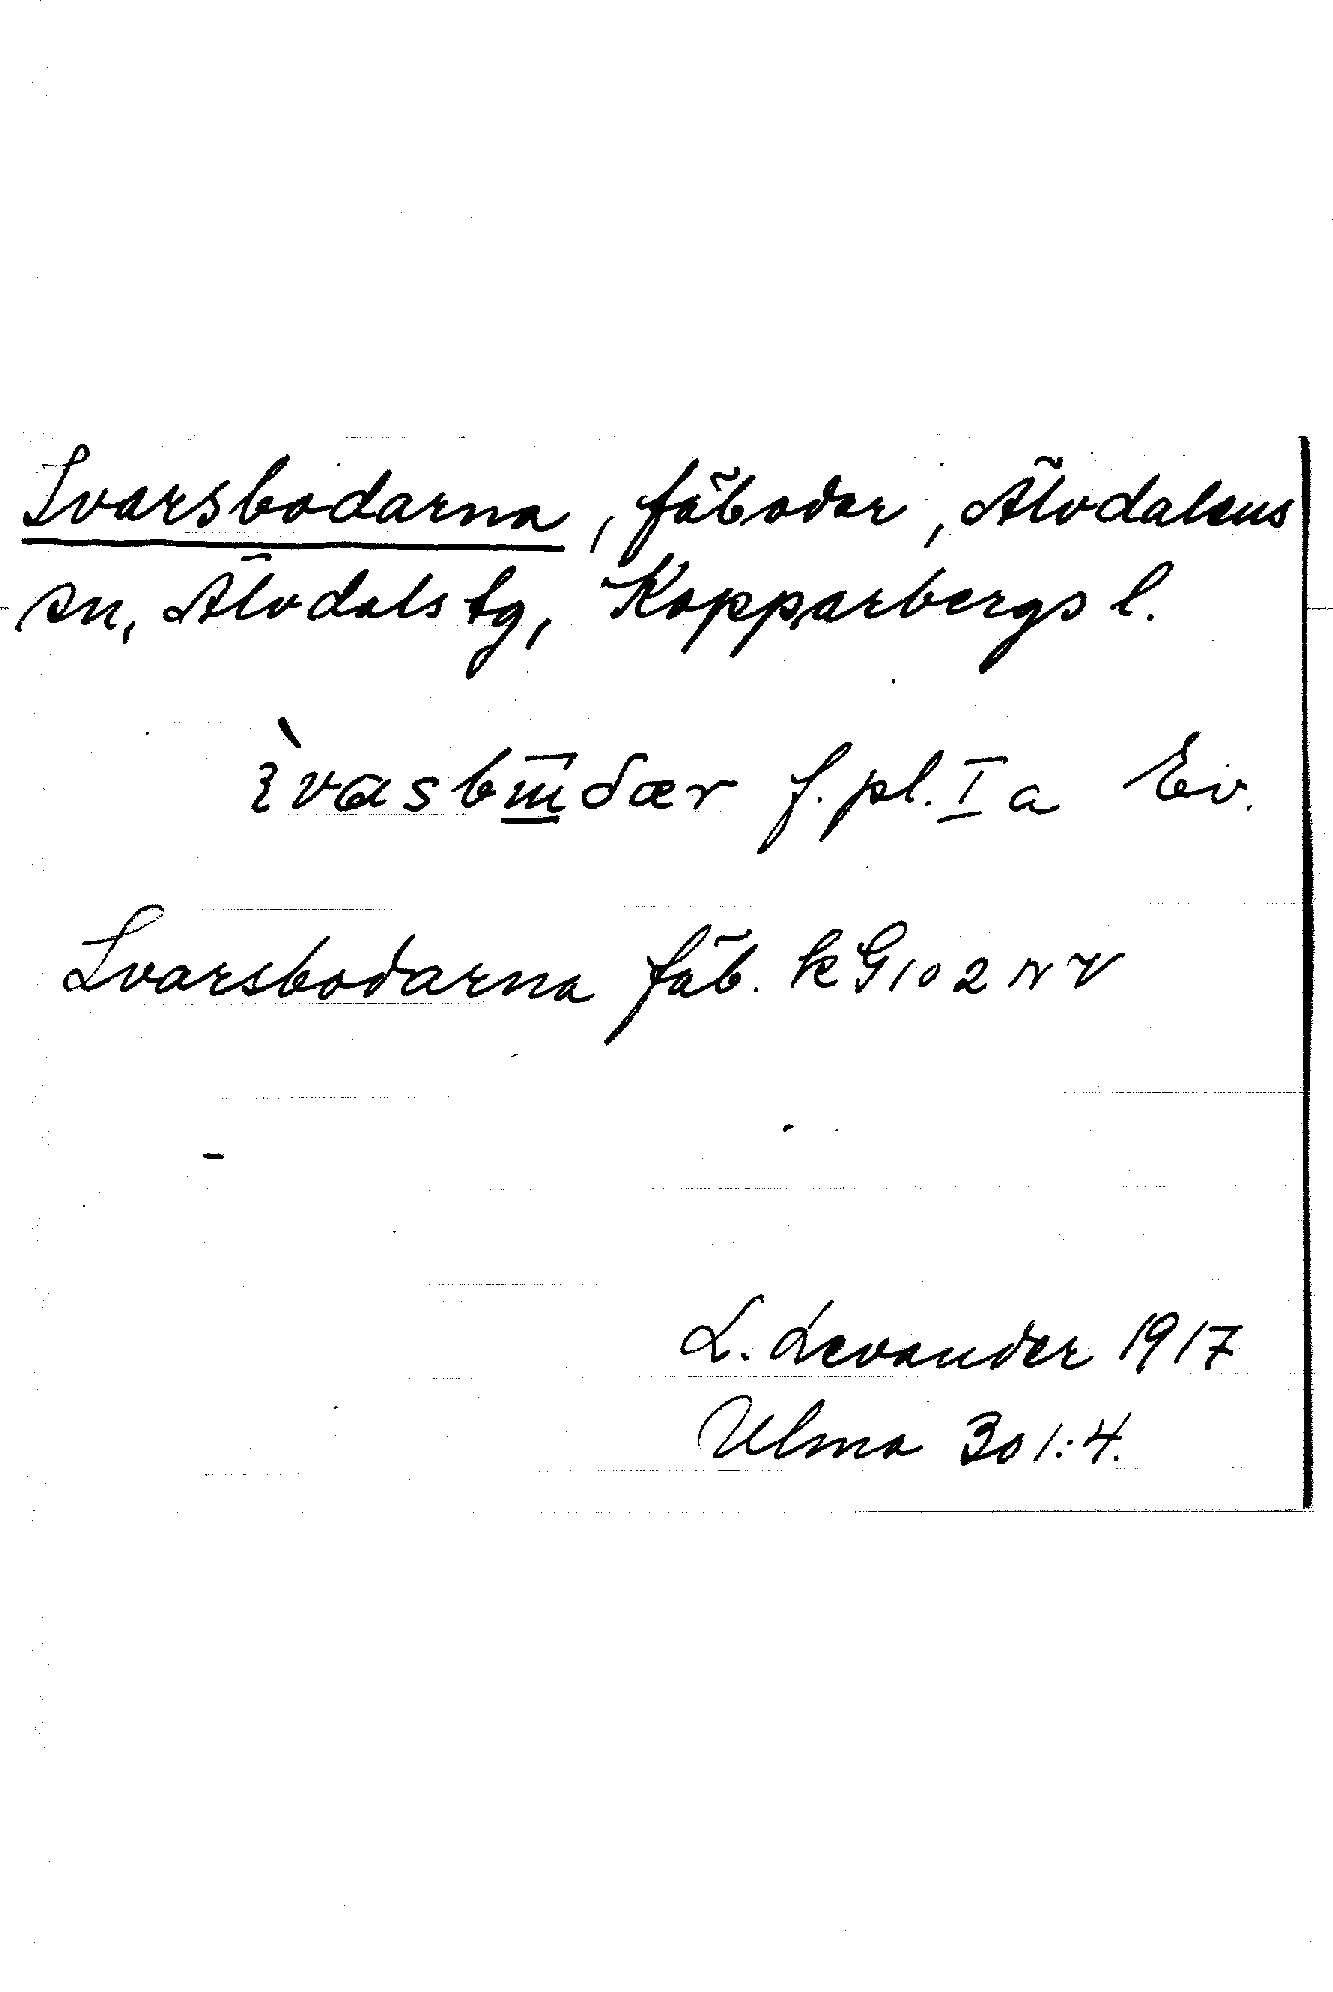 Ivarsbodarna, fäbodar, Älvdalens
sn, Älvdals tg, Kopparbergs l.
f. pl. I a Ev.
Ivarsbodarna fäb. k G 102 NV
L. Levander 1917
Ulma 301:4.